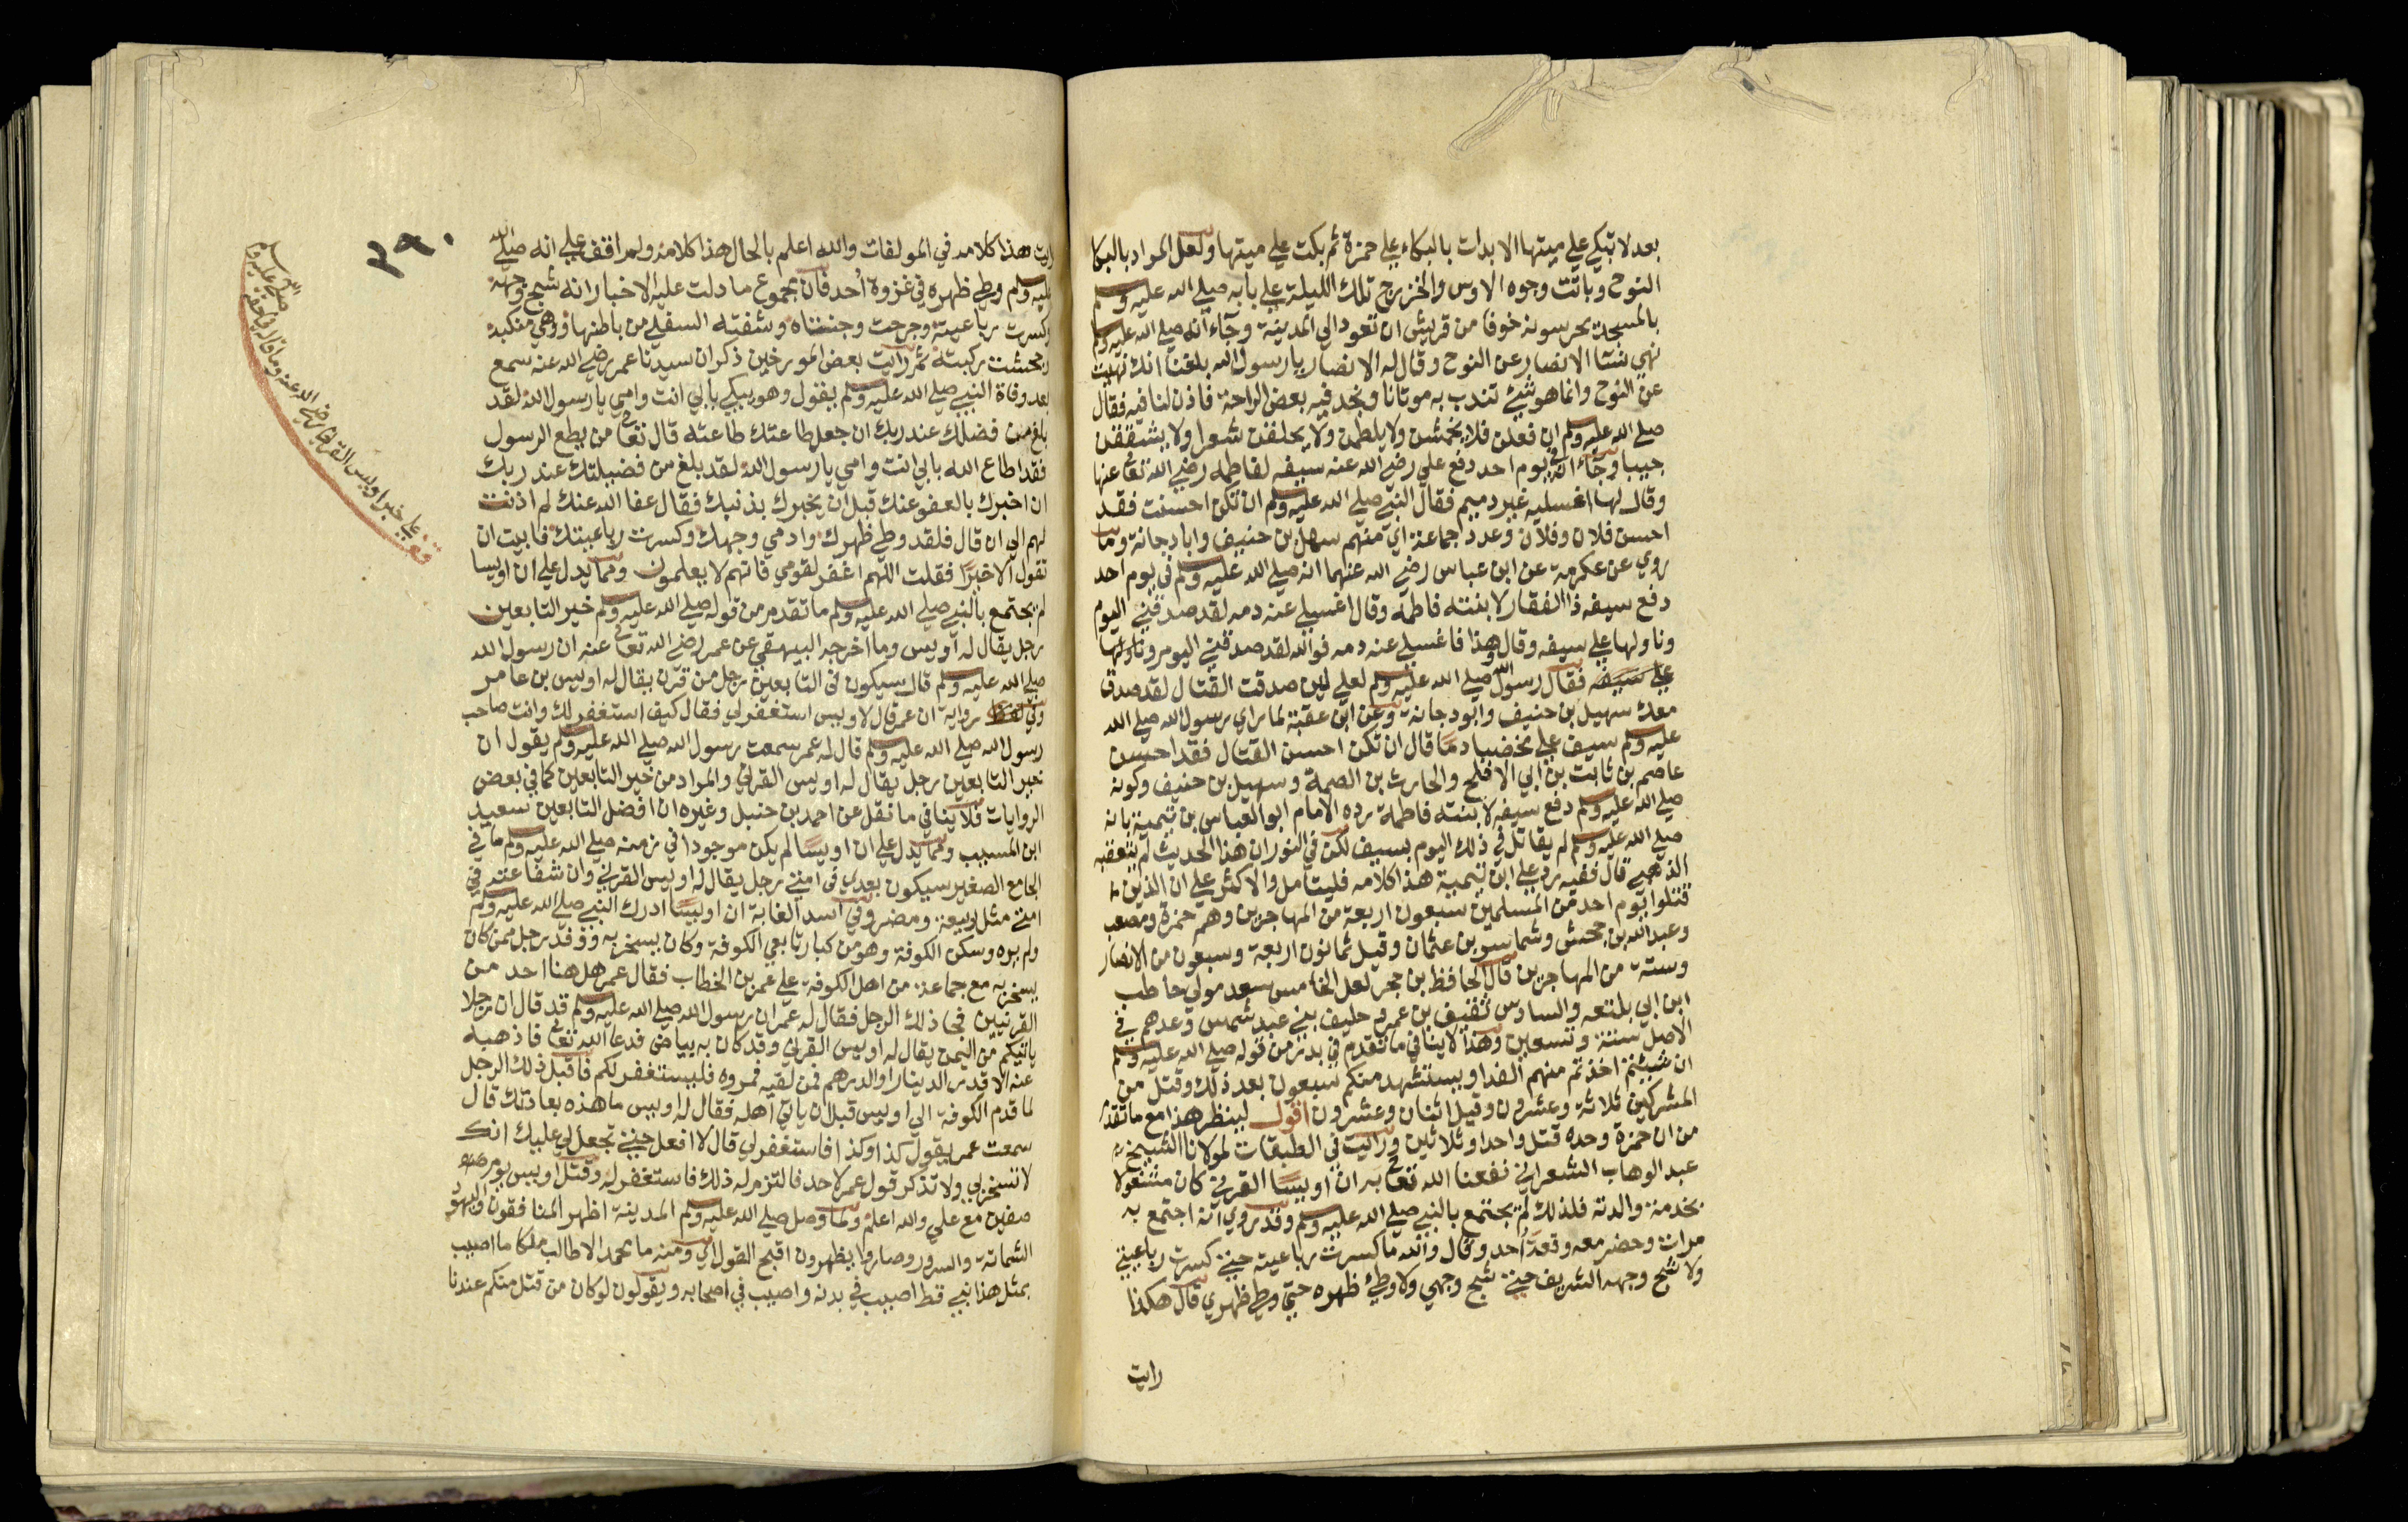 بعد لا تبكي على ميتها الا بدات بالبكاء على حمزة ثم بكت على ميتها ولعل المراد بالبكا
النوح وباتت وجوه الاوس والخزرج تلك الليلة على بابه صلى الله عليه وسلم
بالمسجد يحرسونه خوفا من قريش ان تعود الى المدينة وجاء انه صلى الله عليه وسلم
نهى نسا الانصار عن النوح وقال له الانصار يا رسول الله بلغنا انك نهيت
عن النوح وانما هو شيئ تندب به موتانا ونجد فيه بعض الراحة فاذن لنا فيه فقال
صلى الله عليه وسلم ان فعلن فلا يخمشن ولا يلطمن ولا يحلقن شعرا ولا يشققن
جيبا وجاء انه في يوم احد دفع على رضي الله عنه سيفه لفاطمه رضي الله تعالى عنها
وقال لها اغسليه غير دميم فقال النبي صلى الله عليه وسلم ان تكن احسنت فقد
احسن فلان وفلان وعدد جماعة اي منهم سهل بن حنيف وابا دجانة وما
روي عن عكرمة عن ابن عباس رضي الله عنهما انه صلى الله عليه وسلم في يوم احد
دفع سيفه ذا الفقار لابنته فاطمه وقال اغسلي عنه دمه لقد صدقني اليوم
وناولها علي سيفه وقال وهذا فاغسلي عنه دمه فوالله لقد صدقني اليوم وناولها
علي سيفه فقال رسول الله صلى الله عليه وسلم لعلي لين صدقت القتال لقد صدق
معك سهيل بن حنيف وابو دجانة وعن ابن عقبة لما راي رسول الله صلى الله
عليه وسلم سيف علي مخضبا دما قال ان تكن احسن القتال فقد احسن
عاصم بن ثابت بن ابي الافلح والحارث بن الصمة وسهيل بن حنيف وكونه
صلى الله عليه وسلم دفع سيفه لابنته فاطمة رده الامام ابو العباس بن تيمية بانه
صلى الله عليه وسلم لم يقاتل في ذلك اليوم بسيف لكن في النور ان هذا الحديث لم يتعقبه
الذهبي قال ففيه رد على ابن تيمية هذا كلامه فليتامل والاكثر على ان الذين
قتلوا يوم احد من المسلمين سبعون اربعة من المهاجرين وهم حمزة ومصعب
وعبد الله بن جحش وشماس بن عثمان وقيل ثمانون اربعة وسبعون من الانصار
وستة من المهاجرين قال الحافظ بن حجر لعل الخامس سعد مولى حاطب
ابن ابي بلتعه والسادس ثقيف بن عمرو حليف بني عبد شمس وعدهم في
الاصل ستة وتسعين وهذا لا ينافي ما تقدم في بدر من قوله صلى الله عليه وسلم
ان شيتم اخذتم منهم الفدا ويستشهد منكم سبعون بعد ذلك وقتل من
المشركين ثلاثة وعشرون وقيل اثنان وعشرون اقول لينظر هذا مع ما تقدم
من ان حمزة وحده قتل واحدا وثلاثين ورايت في الطبقات لمولانا الشيخ
عبد الوهاب الشعراني نفعنا الله تعالى به ان اويسا القرني كان مشغولا
بخدمة والدته فلذلك لم يجتمع بالنبي صلى الله عليه وسلم وقد روي انه اجتمع به
مرات وحضر معه وقعة احد وقال والله ما كسرت رباعيته حتى كسرت رباعيتي
ولا شج وجهه الشريف حتى شج وجهي ولا وطئ ظهره حتى وطي ظهري قال هكذا
رايت
٢٩٠
رايت هذا كلامه في المولفات والله اعلم بالحال هذا كلامه ولم اقف على انه صلى الله
عليه وسلم وطي ظهره في غزوة احد فان مجموع ما دلت عليه الاخبار انه شج وجهه
وكسرت رباعيته وجرحت وجنتاه وشفته السفلى من باطنها ووهي منكبه
وجحشت ركبته ثم رايت بعض المورخين ذكر ان سيدنا عمر رضي الله عنه سمع
بعد وفاة النبي صلى الله عليه وسلم يقول وهو يبكي بابي انت وامي يا رسول الله لقد
بلغ من فضلك عند ربك ان جعل طاعتك طاعته قال تعالى من يطع الرسول
فقد اطاع الله بابي انت وامي يا رسول الله لقد بلغ من فضيلتك عند ربك
ان اخبرك بالعفو عنك قبل ان يخبرك بذنبك فقال عفا الله عنك لم اذنت
لهم الى ان قال فلقد وطي ظهرك وادمي وجهك وكسرت رباعيتك فابيت ان
تقول الا خيرا فقلت اللهم اغفر لقومي فانهم لا يعلمون ومما يدل على ان اويسا
لم يجتمع بالنبي صلى الله عليه وسلم ما تقدم من قوله صلى الله عليه وسلم خير التابعين
رجل يقال له اويس وما اخرجه البيهقي عن عمر رضي الله تعالى عنه ان رسول الله
صلى الله عليه وسلم قال سيكون في التابعين رجل من قرن يقال له اويس بن عامر
وفي رواية ان عمر قال لاويس استغفر لي فقال كيف استغفر لك وانت صاحب
رسول الله صلى الله عليه وسلم قال له عمر سمعت رسول الله صلى الله عليه وسلم يقول ان
خير التابعين رجل يقال له اويس القرني والمراد من خير التابعين كما في بعض
الروايات فلا ينافي ما نقل عن احمد بن حنبل وغيره ان افضل التابعين سعيد
ابن المسيب ومما يدل على ان اويسا لم يكن موجودا في زمنه صلى الله عليه وسلم ما في
الجامع الصغير سيكون بعدي في امتي رجل يقال له اويس القرني وان شفاعته في
امتي مثل ربيعة ومضر وفي اسد الغابة ان اويسا ادرك النبي صلى الله عليه وسلم
ولم يره وسكن الكوفة وهو من كبار تابعي الكوفة وكان يسخر به ووفد رجل ممن كان
يسخر به مع جماعة من اهل الكوفة على عمر بن الخطاب فقال عمر هل هنا احد من
القرنيين فجا ذلك الرجل فقال له عمر ان رسول الله صلى الله عليه وسلم قد قال ان رجلا
ياتيكم من اليمن يقال له اويس القرني وقد كان به بياض فدعا الله تعالى فاذهبه
عنه الا قدر الدينار او الدرهم فمن لقيه فمروه فليستغفر لكم فاقبل ذلك الرجل
لما قدم الكوفة الى اويس قبل ان ياتي اهله فقال له اويس ما هذه بعادتك قال
سمعت عمر يقول كذا وكذا فاستغفر لي قال لا افعل حتى تجعل لي عليك انك
لا تسخر بي ولا تذكر قول عمر لاحد فالتزم له ذلك فاستغفر له وقتل اويس يوم
صفين مع علي والله اعلم ولما وصل صلى الله عليه وسلم المدينة اظهر المنافقون واليهود
الشماتة والسرور وصاروا يظهرون اقبح القول اي ومنه ما محمد الا طالب ملك ما اصيب
بمثل هذا نبي قط اصيب في بدنه واصيب في اصحابه ويقولون لو كان من قتل منكم عندنا
قف على خبر اويس القرني رضي الله عنه وما قال
صلى الله عليه وسلم